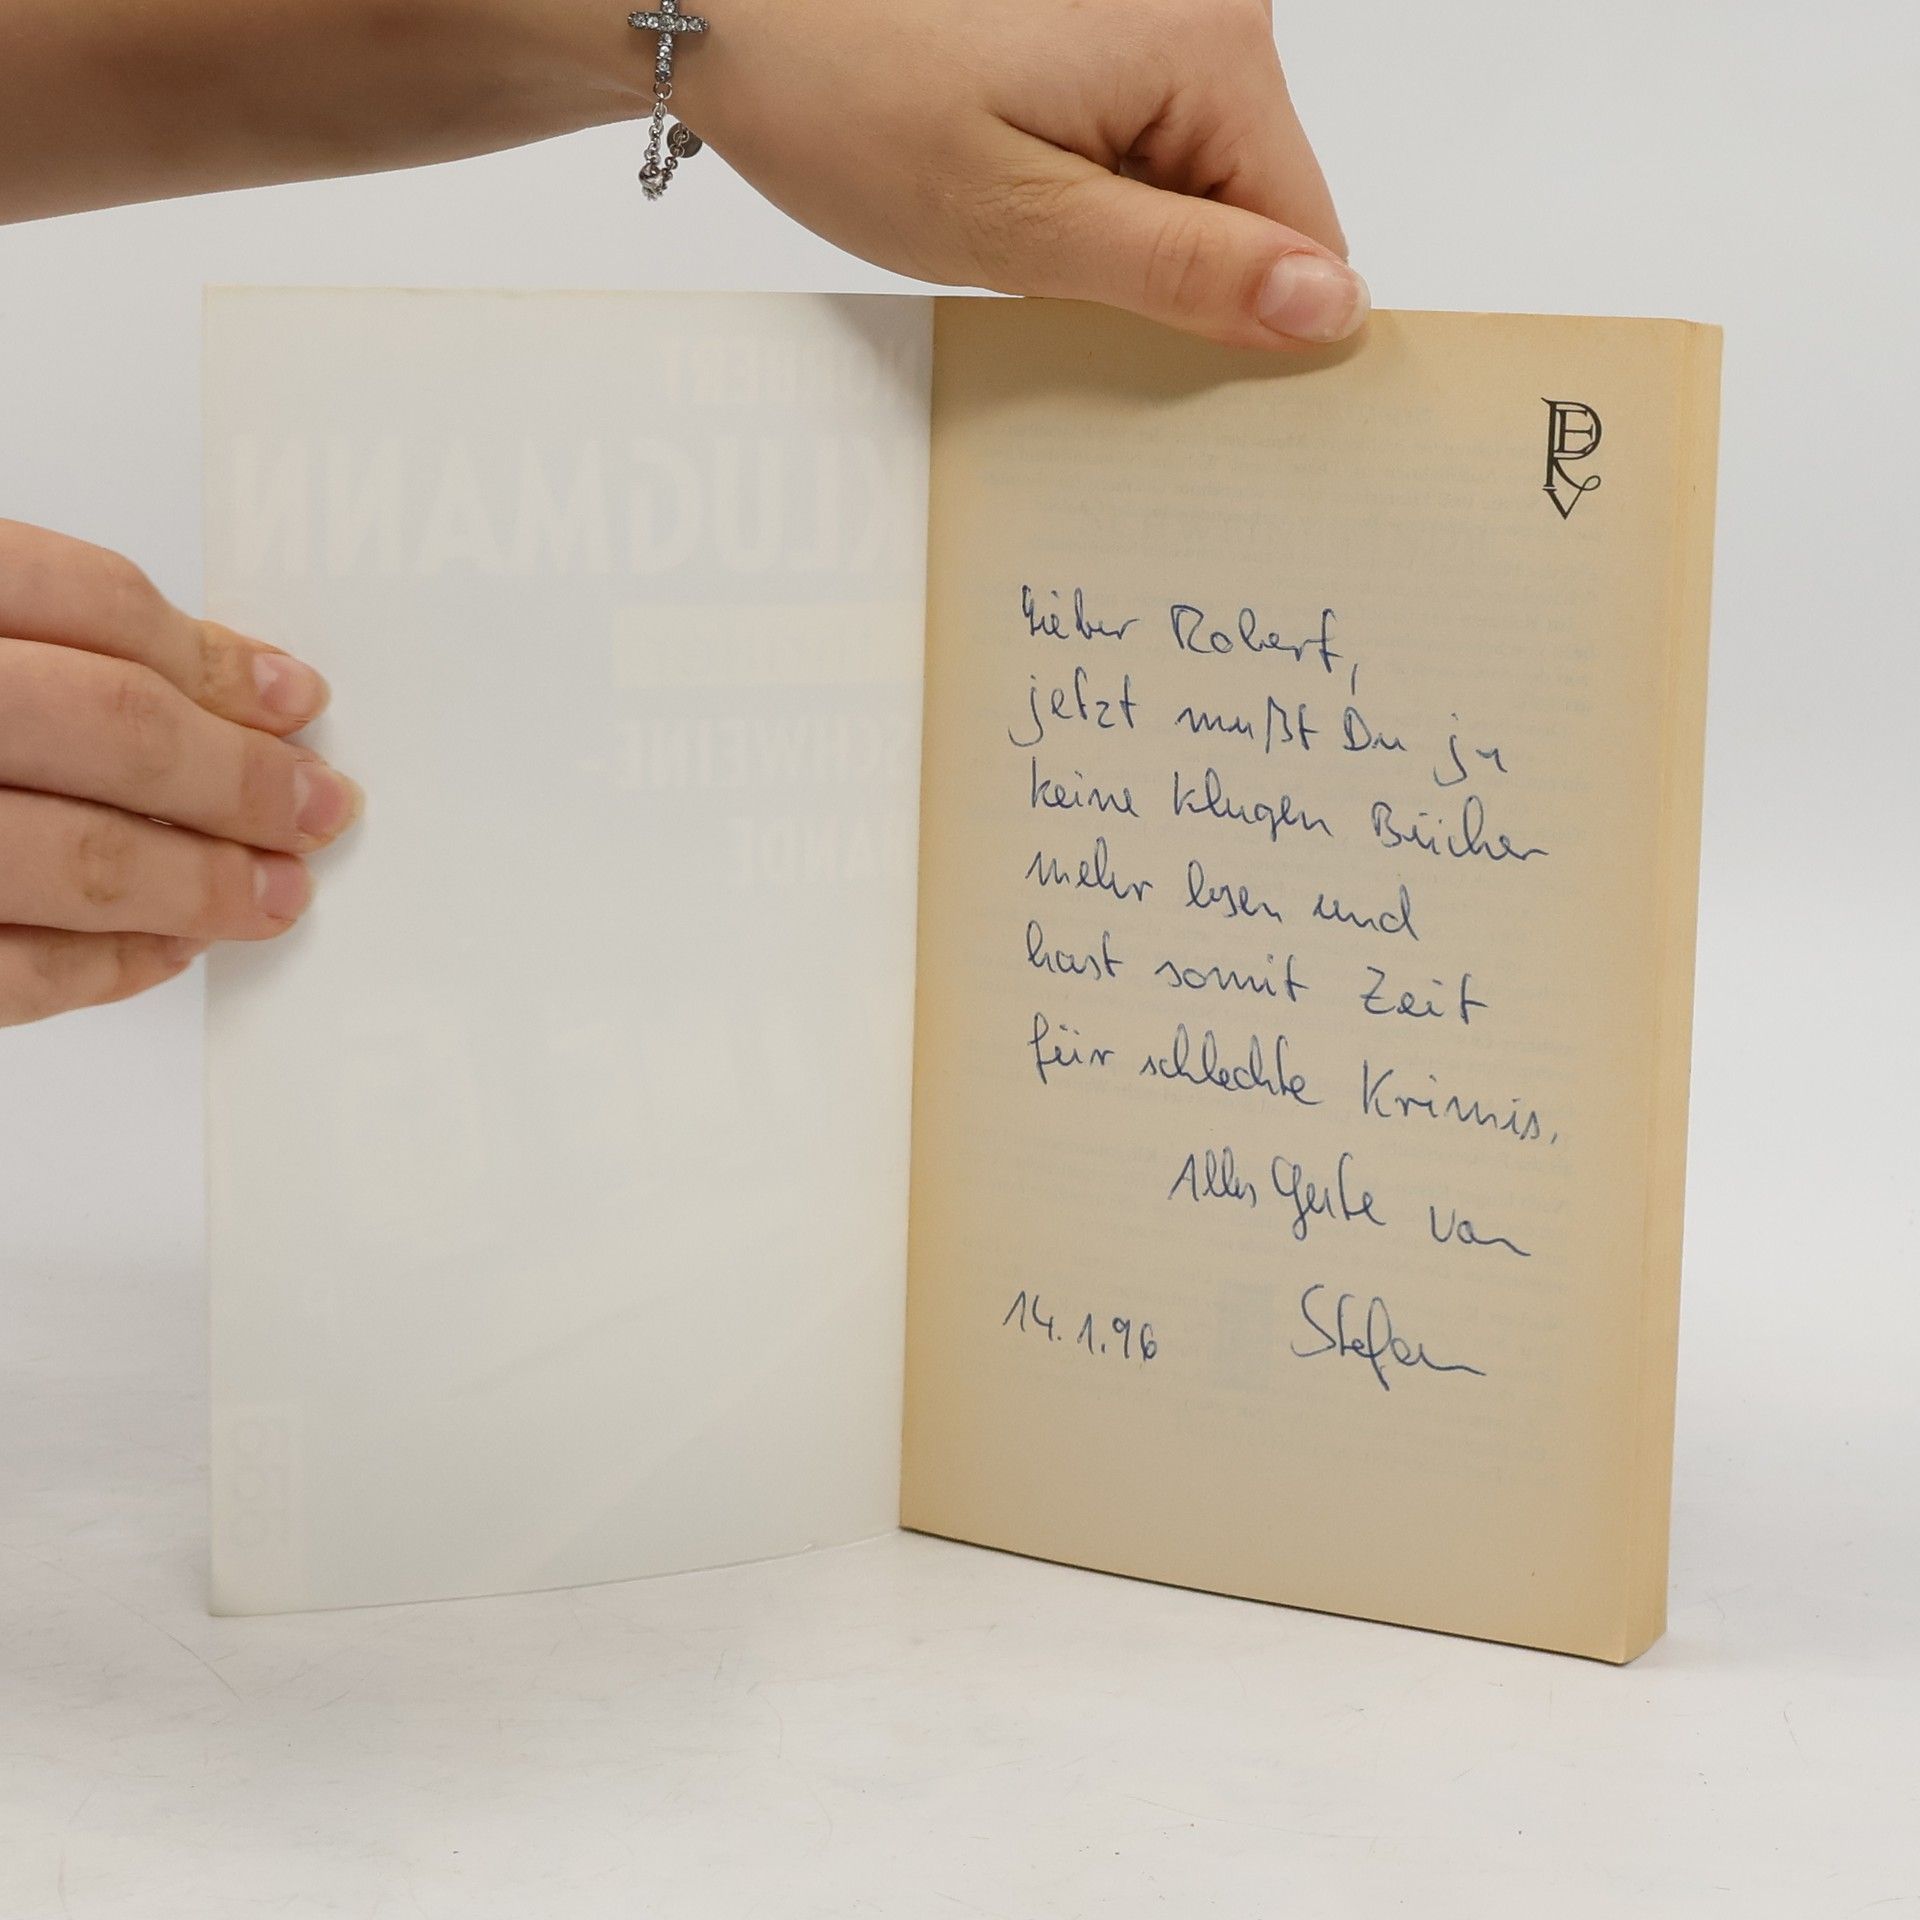 KLUGMANN
SCHWEINE-
Lieber Robert,
jetzt mußt Du ja
keine klugen Bücher
mehr lesen und
hast somit Zeit
für schlechte Krimis.
Alles Gute von
14.1.96 Stefan